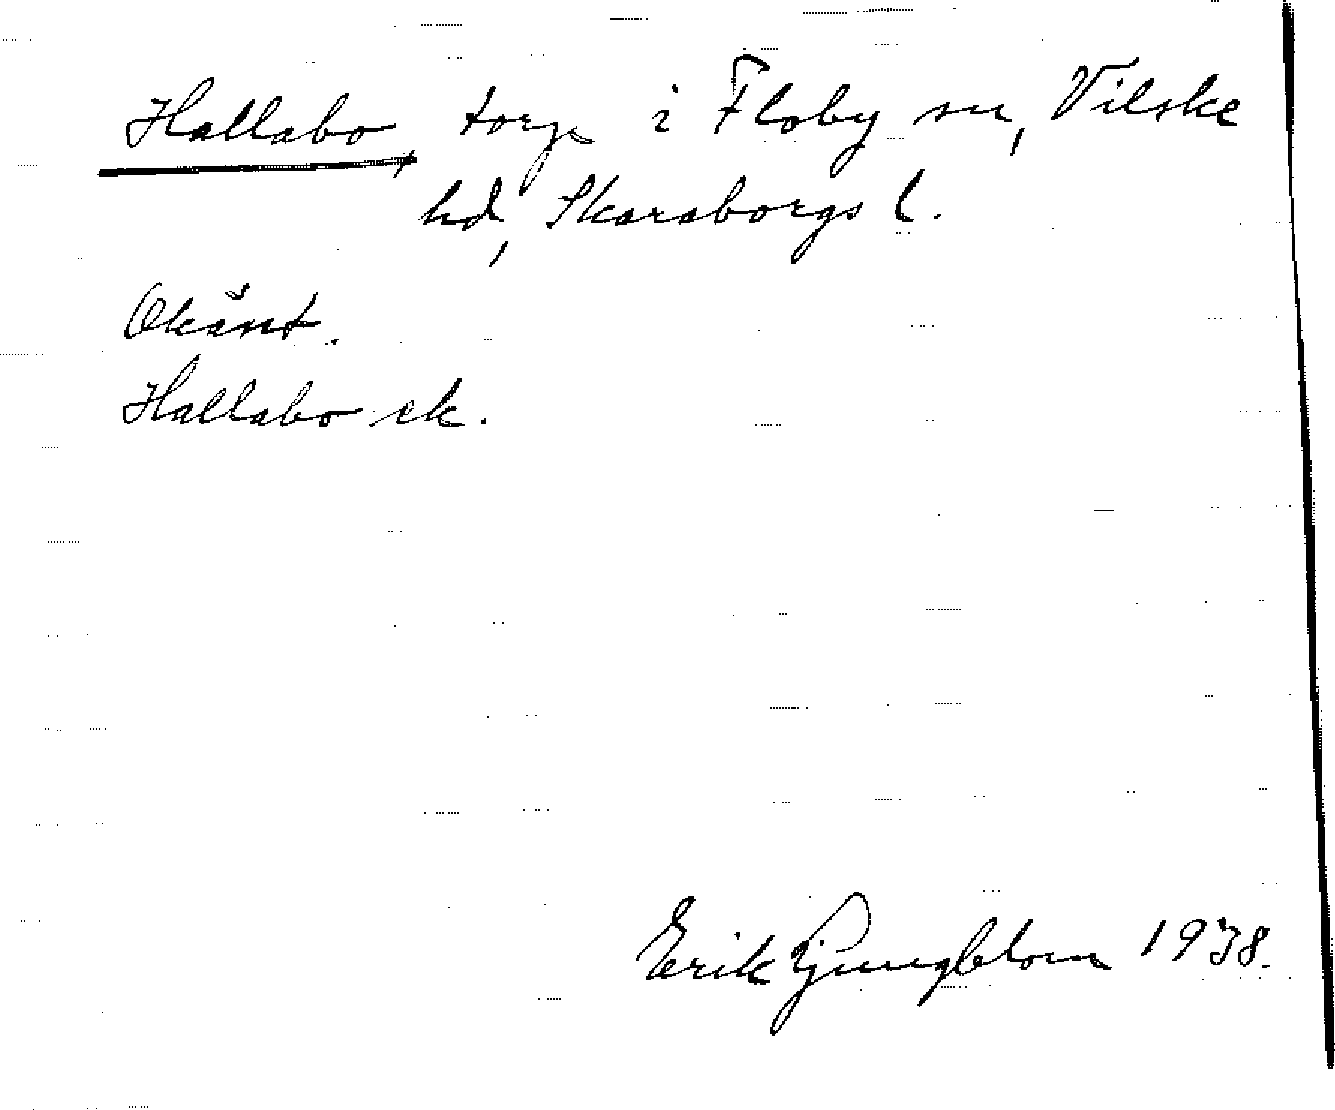 Hallabo, torp i Floby sn, Vilske
hd, Skaraborgs l.
Okänt.
Hallabo ek.
Erik Ljungblom 1938.